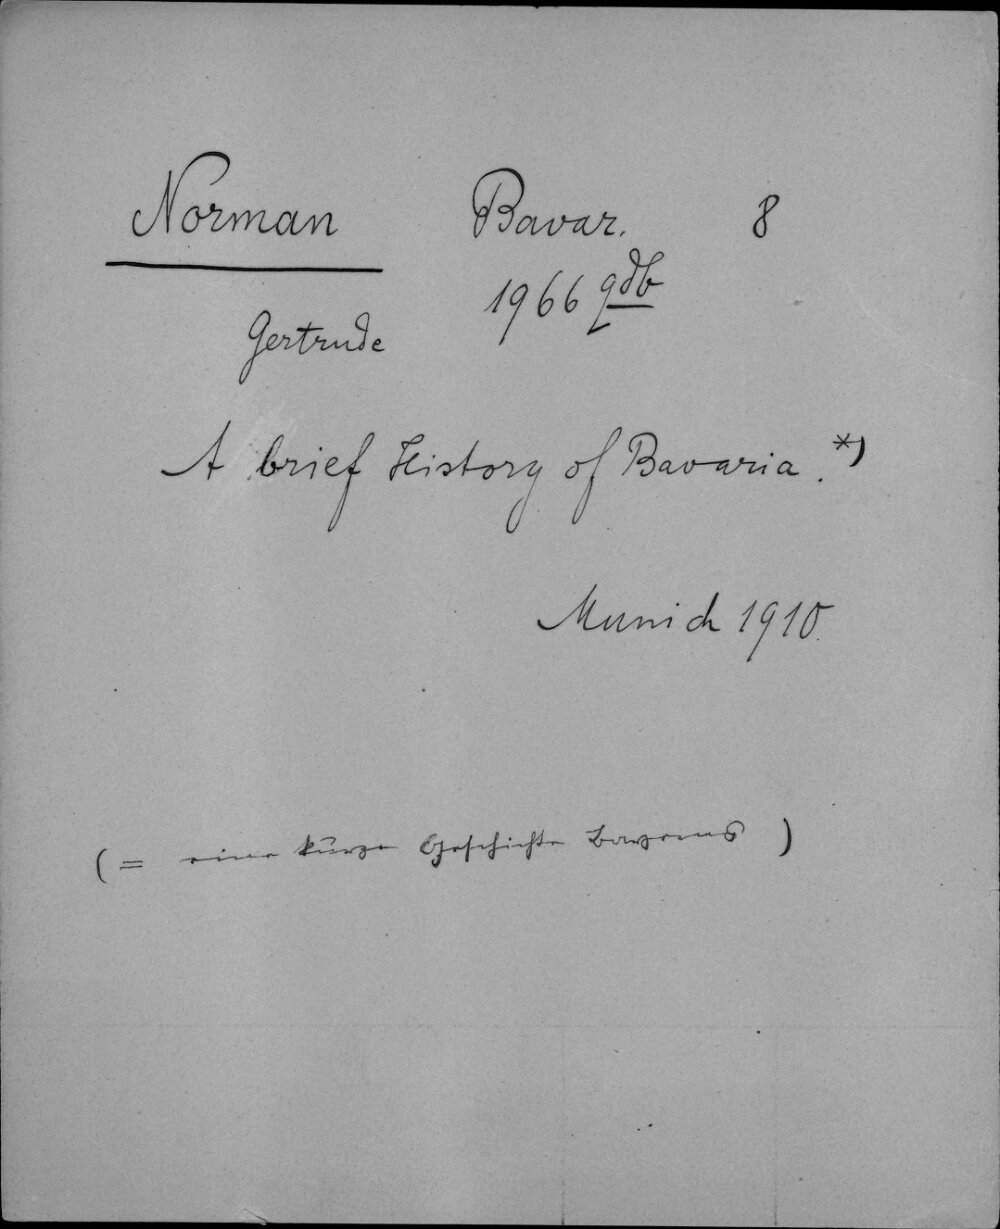 Norman Bavar. 8
1966 qdb
Gertrude
A brief History of Bavaria.*)
Munich 1910.
(= eine kurze Geschichte Bayerns)